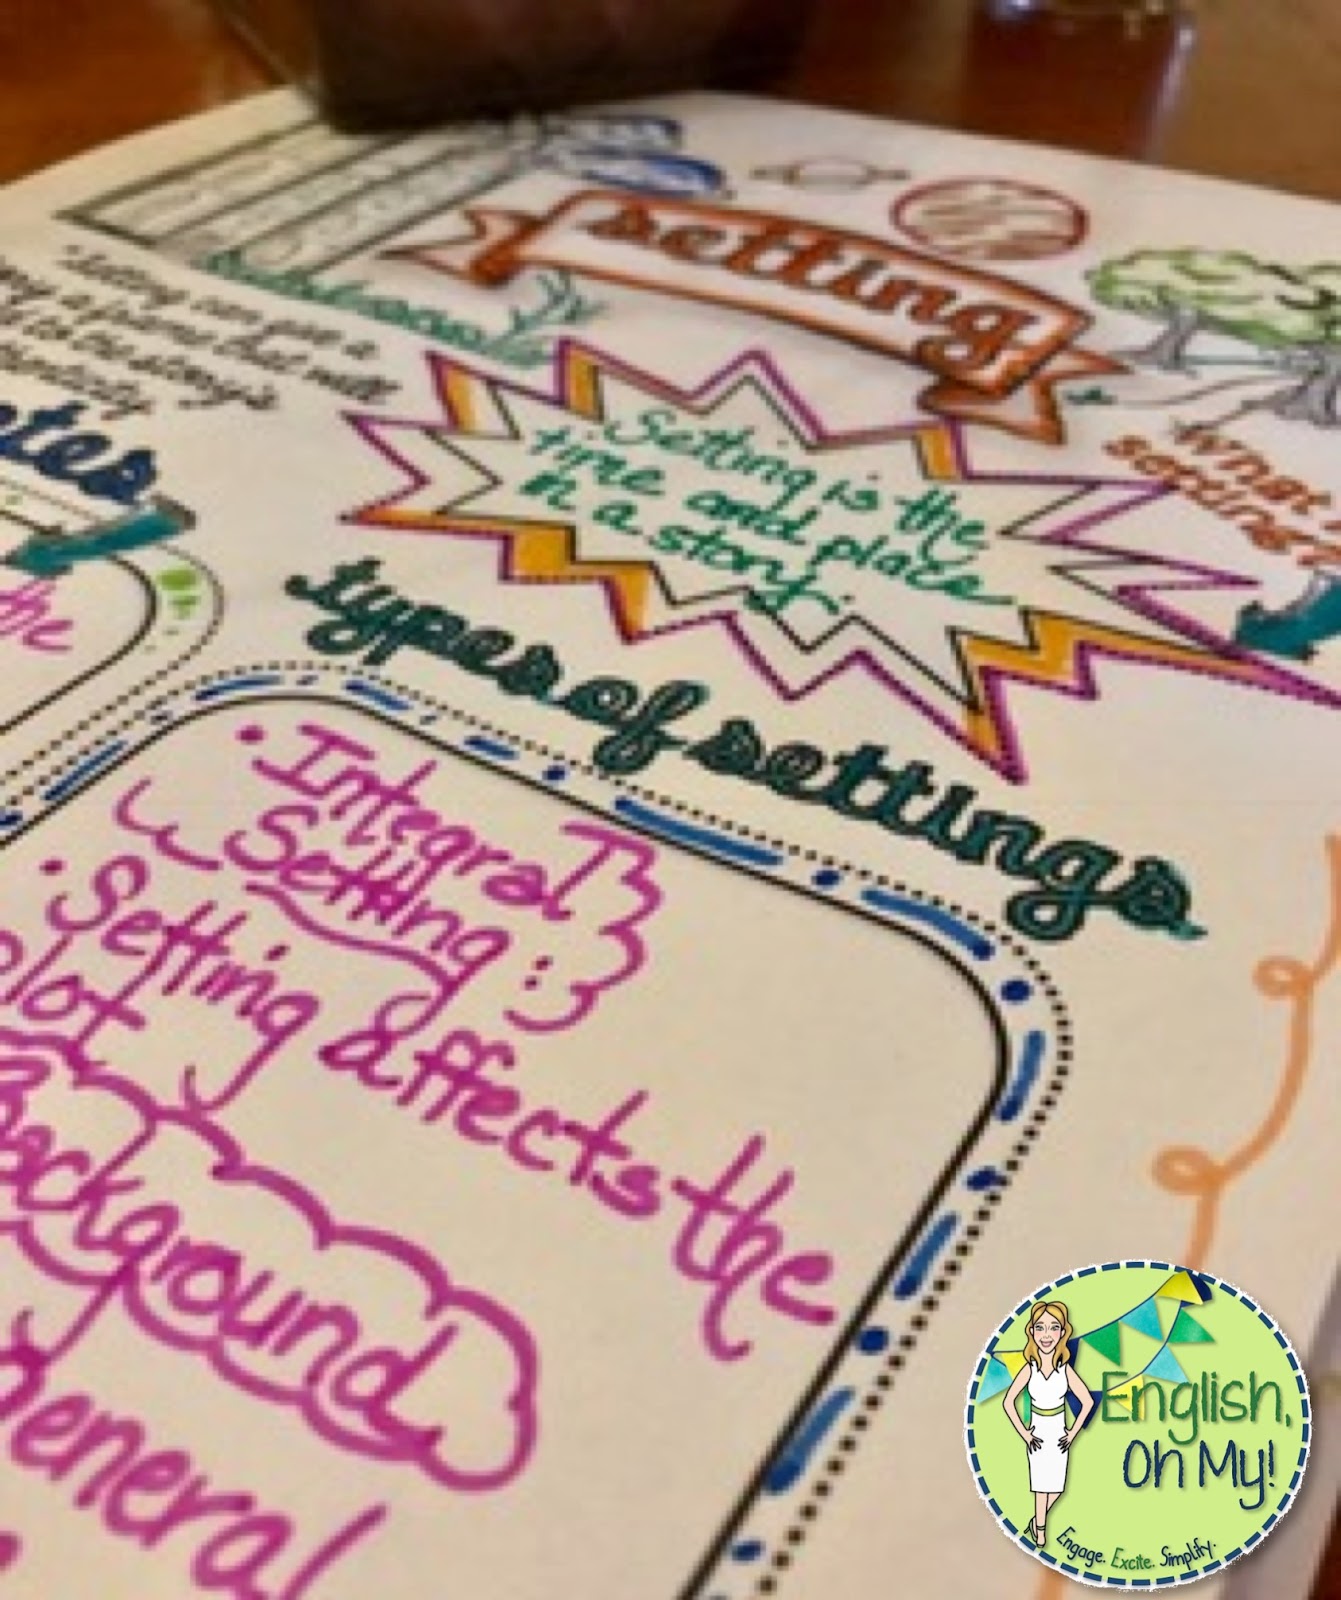 setting
"Setting can give a
story a frame that will
to the story's
Setting is the
time and place
in a story.
What is
setting?
types of settings
the
• Integral
Setting:
• Setting affects the
plot
Background
General
English,
Oh My!
Engage. Excite. Simplify.